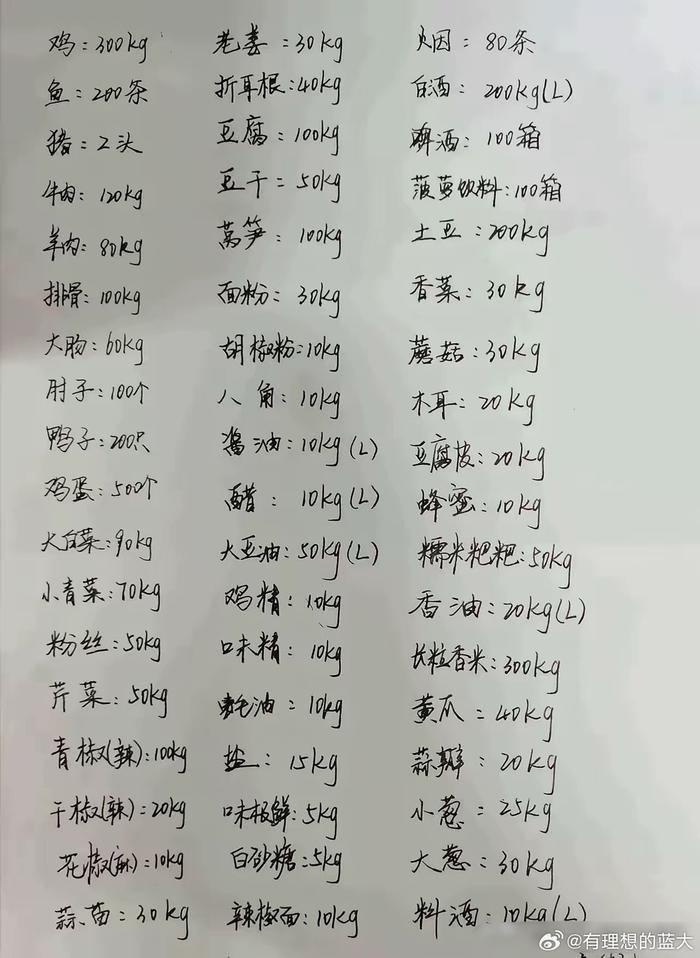 鸡：300kg
鱼：200条
猪：2头
牛肉：120kg
羊肉：80kg
排骨：100kg
大肠：60kg
肘子：100个
鸭子：200只
鸡蛋：500个
大白菜：90kg
小青菜：70kg
粉丝：50kg
芹菜：50kg
青椒(辣)：100kg
干椒(辣)：20kg
花椒(麻)：10kg
蒜苗：30kg
老姜：30kg
折耳根：40kg
豆腐：100kg
豆干：50kg
莴笋：100kg
面粉：30kg
胡椒粉：10kg
八角：10kg
酱油：10kg(L)
醋：10kg(L)
大豆油：50kg(L)
鸡精：10kg
味精：10kg
蚝油：10kg
盐：15kg
味极鲜：5kg
白砂糖：5kg
辣椒面：10kg
烟：80条
白酒：200kg(L)
啤酒：100箱
菠萝饮料：100箱
土豆：200kg
香菜：30kg
蘑菇：30kg
木耳：20kg
豆腐皮：20kg
蜂蜜：10kg
糯米粑粑：50kg
香油：20kg(L)
长粒香米：300kg
黄瓜：40kg
蒜瓣：20kg
小葱：25kg
大葱：30kg
料酒：10kg(L)
@有理想的蓝大